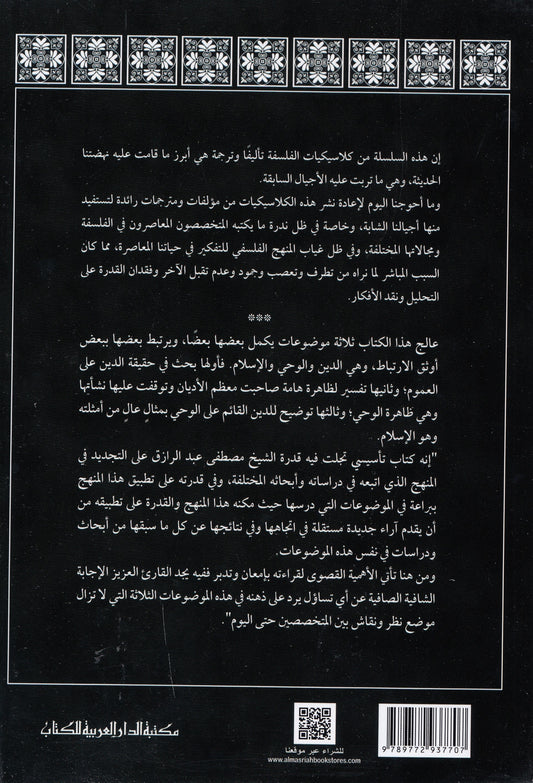 إن هذه السلسلة من كلاسيكيات الفلسفة تأليفًا وترجمة هي أبرز ما قامت عليه نهضتنا
الحديثة، وهي ما تربت عليه الأجيال السابقة.
وما أحوجنا اليوم لإعادة نشر هذه الكلاسيكيات من مؤلفات ومترجمات رائدة لتستفيد
منها أجيالنا الشابة، وخاصة في ظل ندرة ما يكتبه المتخصصون المعاصرون في الفلسفة
ومجالاتها المختلفة، وفي ظل غياب المنهج الفلسفي للتفكير في حياتنا المعاصرة، مما كان
السبب المباشر لما نراه من تطرف وتعصب وجمود وعدم تقبل الآخر وفقدان القدرة على
التحليل ونقد الأفكار.
***
عالج هذا الكتاب ثلاثة موضوعات يكمل بعضها بعضًا، ويرتبط بعضها ببعض
أوثق الارتباط، وهي الدين والوحي والإسلام. فأولها بحث في حقيقة الدين على
العموم؛ وثانيها تفسير لظاهرة هامة صاحبت معظم الأديان وتوقفت عليها نشأتها
وهي ظاهرة الوحي؛ وثالثها توضيح للدين القائم على الوحي بمثالٍ عالٍ من أمثلته
وهو الإسلام.
"إنه كتاب تأسيسي تجلت فيه قدرة الشيخ مصطفى عبد الرازق على التجديد في
المنهج الذي اتبعه في دراساته وأبحاثه المختلفة، وفي قدرته على تطبيق هذا المنهج
ببراعة في الموضوعات التي درسها حيث مكنه هذا المنهج والقدرة على تطبيقه من
أن يقدم آراء جديدة مستقلة في اتجاهها وفي نتائجها عن كل ما سبقها من أبحاث
ودراسات في نفس هذه الموضوعات.
ومن هنا تأتي الأهمية القصوى لقراءته بإمعان وتدبر ففيه يجد القارئ العزيز الإجابة
الشافية الصافية عن أي تساؤل يرد على ذهنه في هذه الموضوعات الثلاثة التي لا تزال
موضع نظر ونقاش بين المتخصصين حتى اليوم".
مكتبة الدار العربية للكتاب
للشراء عبر موقعنا
www.almasriahbookstores.com
9789772937707